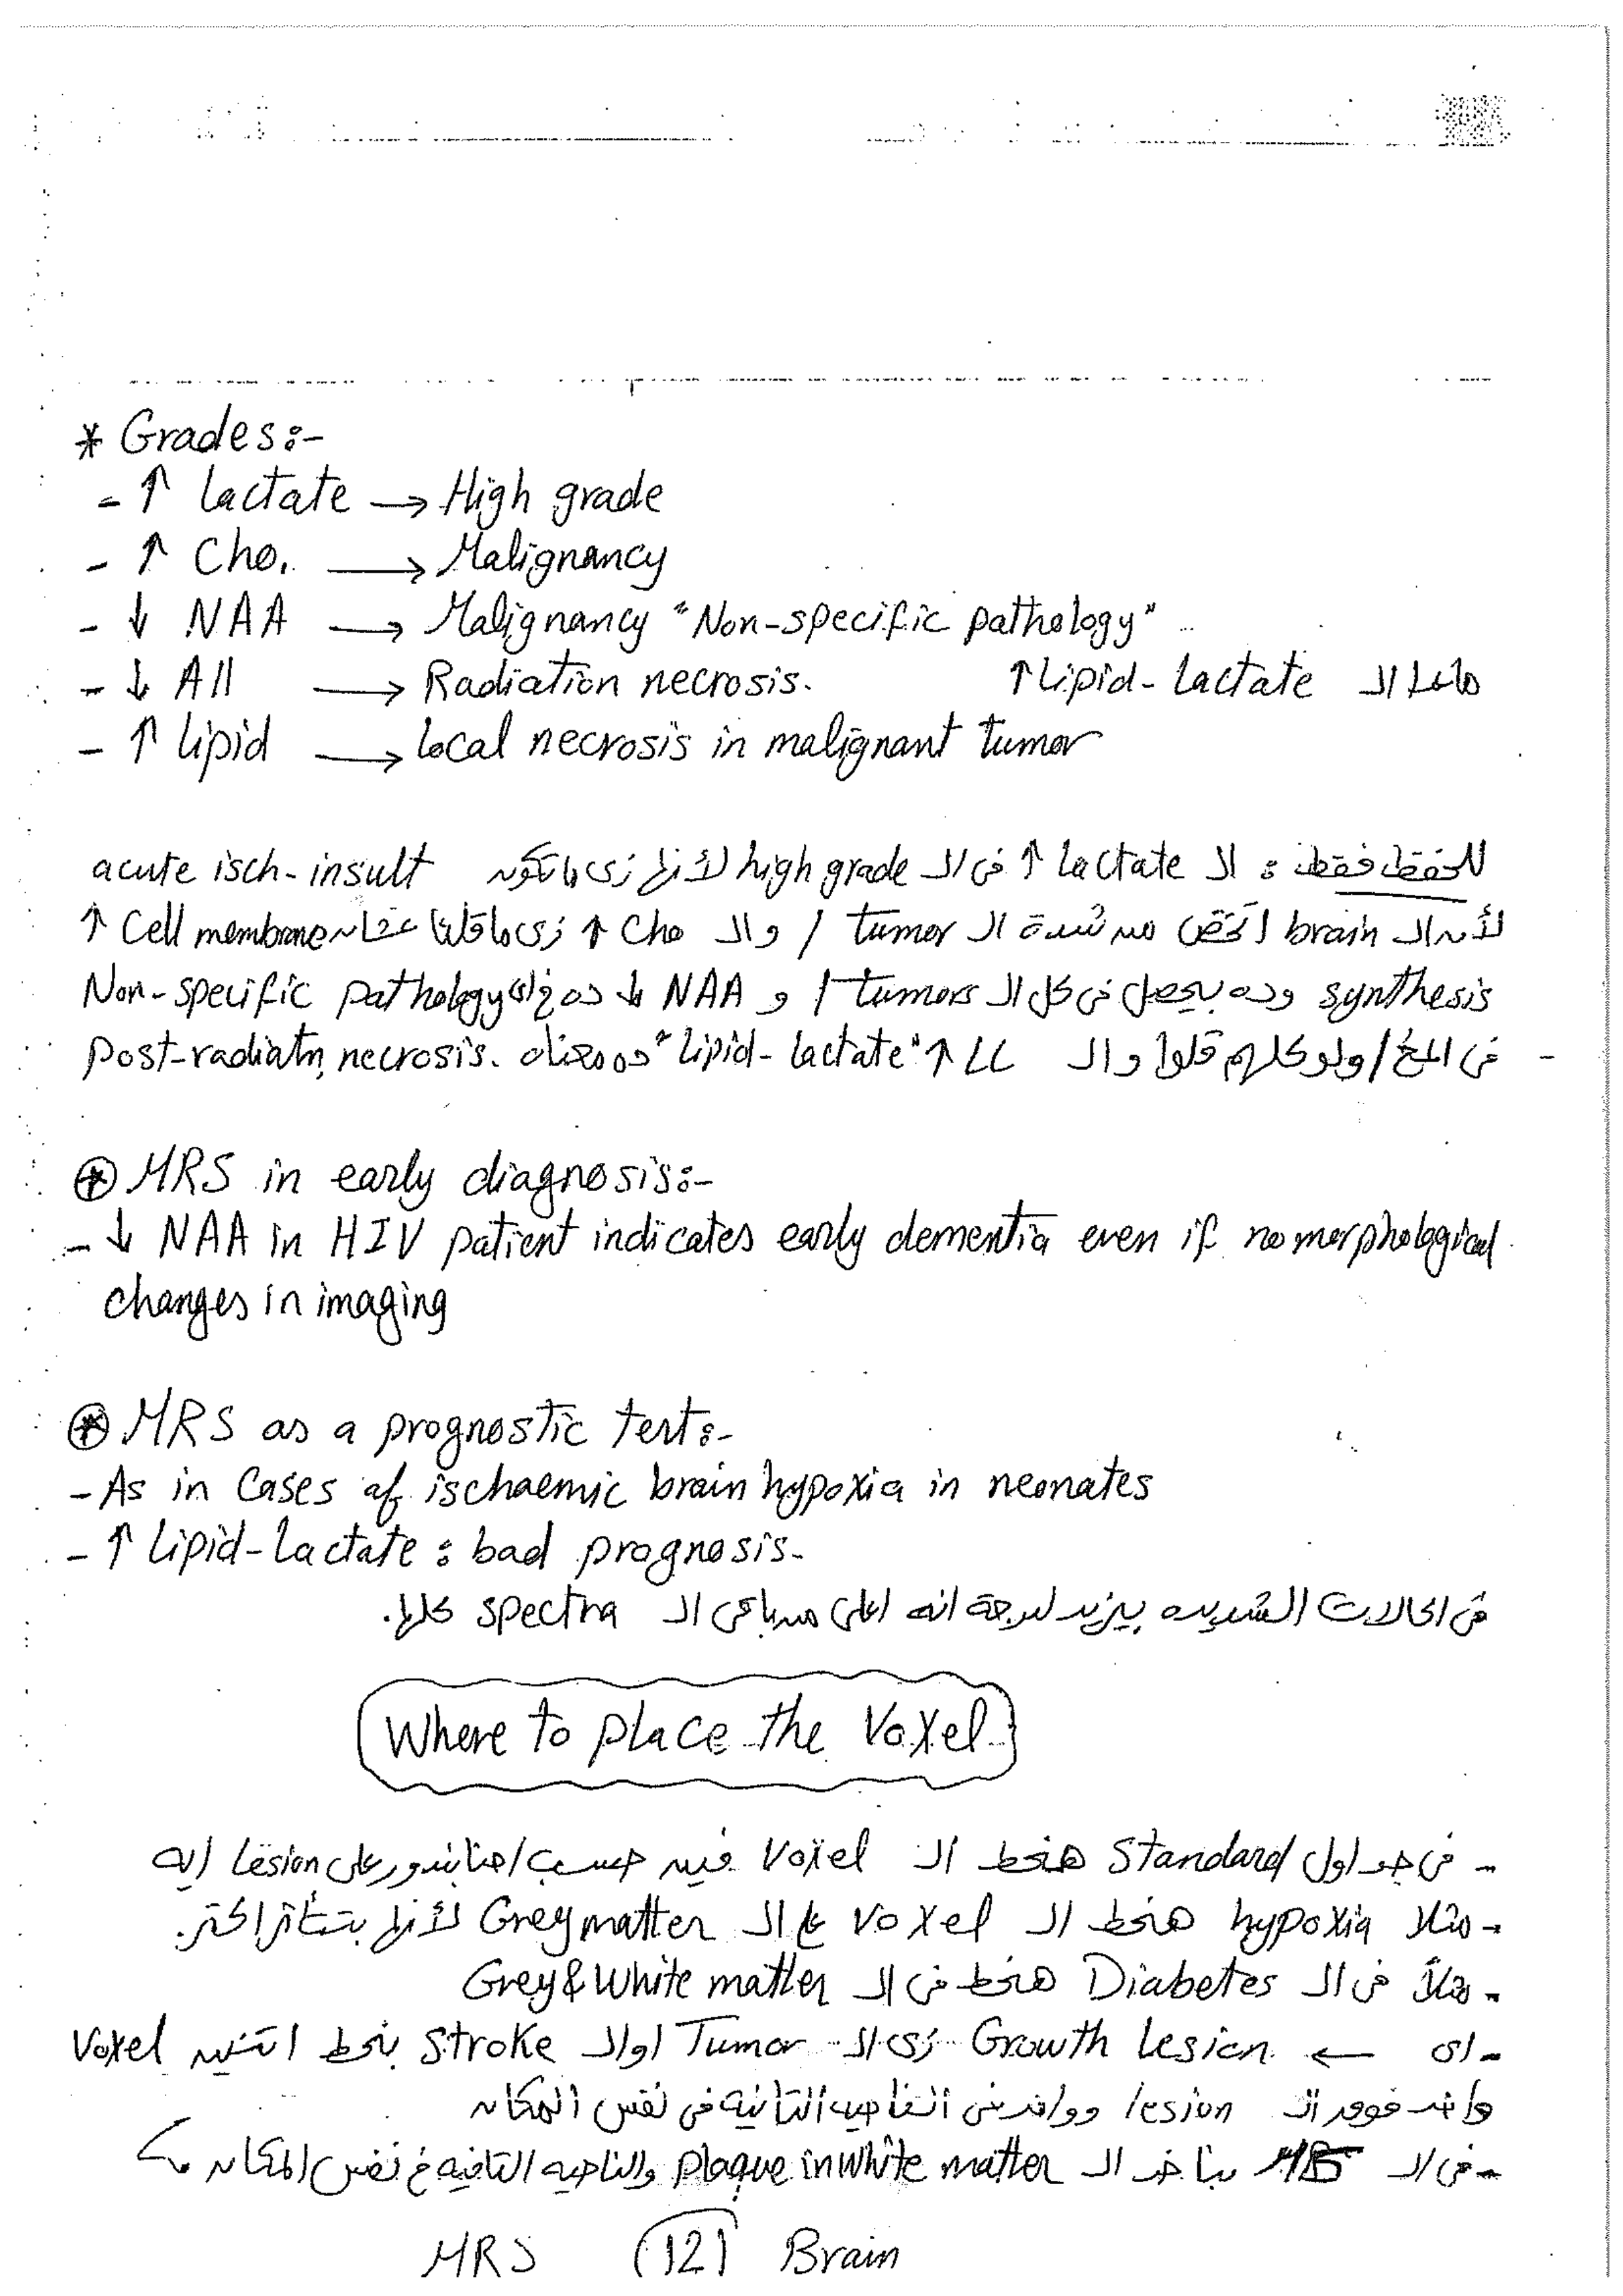 * Grades:-
- ↑ lactate → High grade
- ↑ Cho. → Malignancy
- ↓ NAA → Malignancy "Non-specific pathology"
- ↓ All → Radiation necrosis. ماعدا الـ ↑ Lipid-lactate
- ↑ lipid → local necrosis in malignant tumor
للحفظ فقط : الـ lactate ↑ فى الـ high grade لأنها زى ماتكون acute isch-insult
لأن الـ brain اتخض من شدة الـ tumor / والـ Cho ↑ زى ماقلنا عشان Cell membrane ↑
synthesis وده بيحصل فى كل الـ tumors / و NAA ↓ ده Non-specific pathology
- فى المخ / ولو كلهم قلوا والـ LL ↑ "lipid-lactate" ده معناه post-radiatn necrosis.
⊛ MRS in early diagnosis:-
- ↓ NAA in HIV patient indicates early dementia even if no morphological
changes in imaging
⊛ MRS as a prognostic test:-
- As in Cases of ischaemic brain hypoxia in neonates
- ↑ lipid-lactate : bad prognosis.
فى الحالات الشديده بيزيد لدرجة انه اعلى من باقى الـ spectra كلها.
Where to place the Voxel
- فى جداول Standard هنحط الـ Voxel فين حسب احنا بندور على Lesion ايه
- مثلا hypoxia هنحط الـ voxel ع الـ Grey matter لأنها بتتأثر اكتر.
- مثلاً فى الـ Diabetes هنحط فى الـ Grey & White matter
- اى ← Growth Lesion زى الـ Tumor اوالـ Stroke بنحط اتنين Voxel
واحد فوق الـ lesion وواحد فى الناحيه التانية فى نفس المكان
- فى الـ MS بناخد الـ plaque in white matter والناحيه التانيه فى نفس المكان
MRS (12) Brain